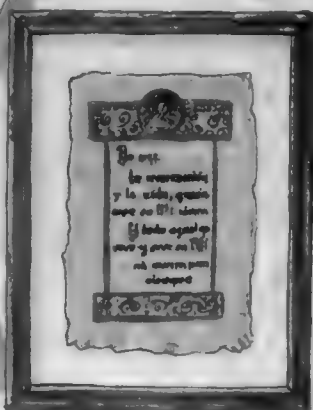 Yo soy
la resurrección
y la vida, quien
cree en Mí vivirá
Y todo aquel que
vive y cree en Mí
no morirá para
siempre